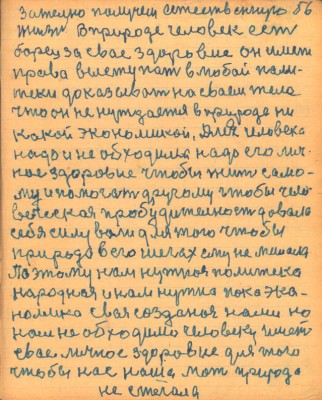 зателно получем естественную 56
жизн В природе человек ест
борец за свае здоровие он имеет
права выступат в любой поли-
теки доказыват на сваем тела
что он не нуждается в природе ни
какой экономикой, Для человека
надо и не обходимя надо его лич-
ное здоровие чтобы жит само-
му и помогат другому чтобы чело-
веческая пробудителност довала
себя силу вали для того чтобы
природа в его шегах ему не мишала
Поэтому нам нужноя политека
народная и нам нужна пока эка-
номика своя созданоя нами но
нам не обходимо человеку имет
свае личное здоровие для того
чтобы нас наша мат природа
не стегала